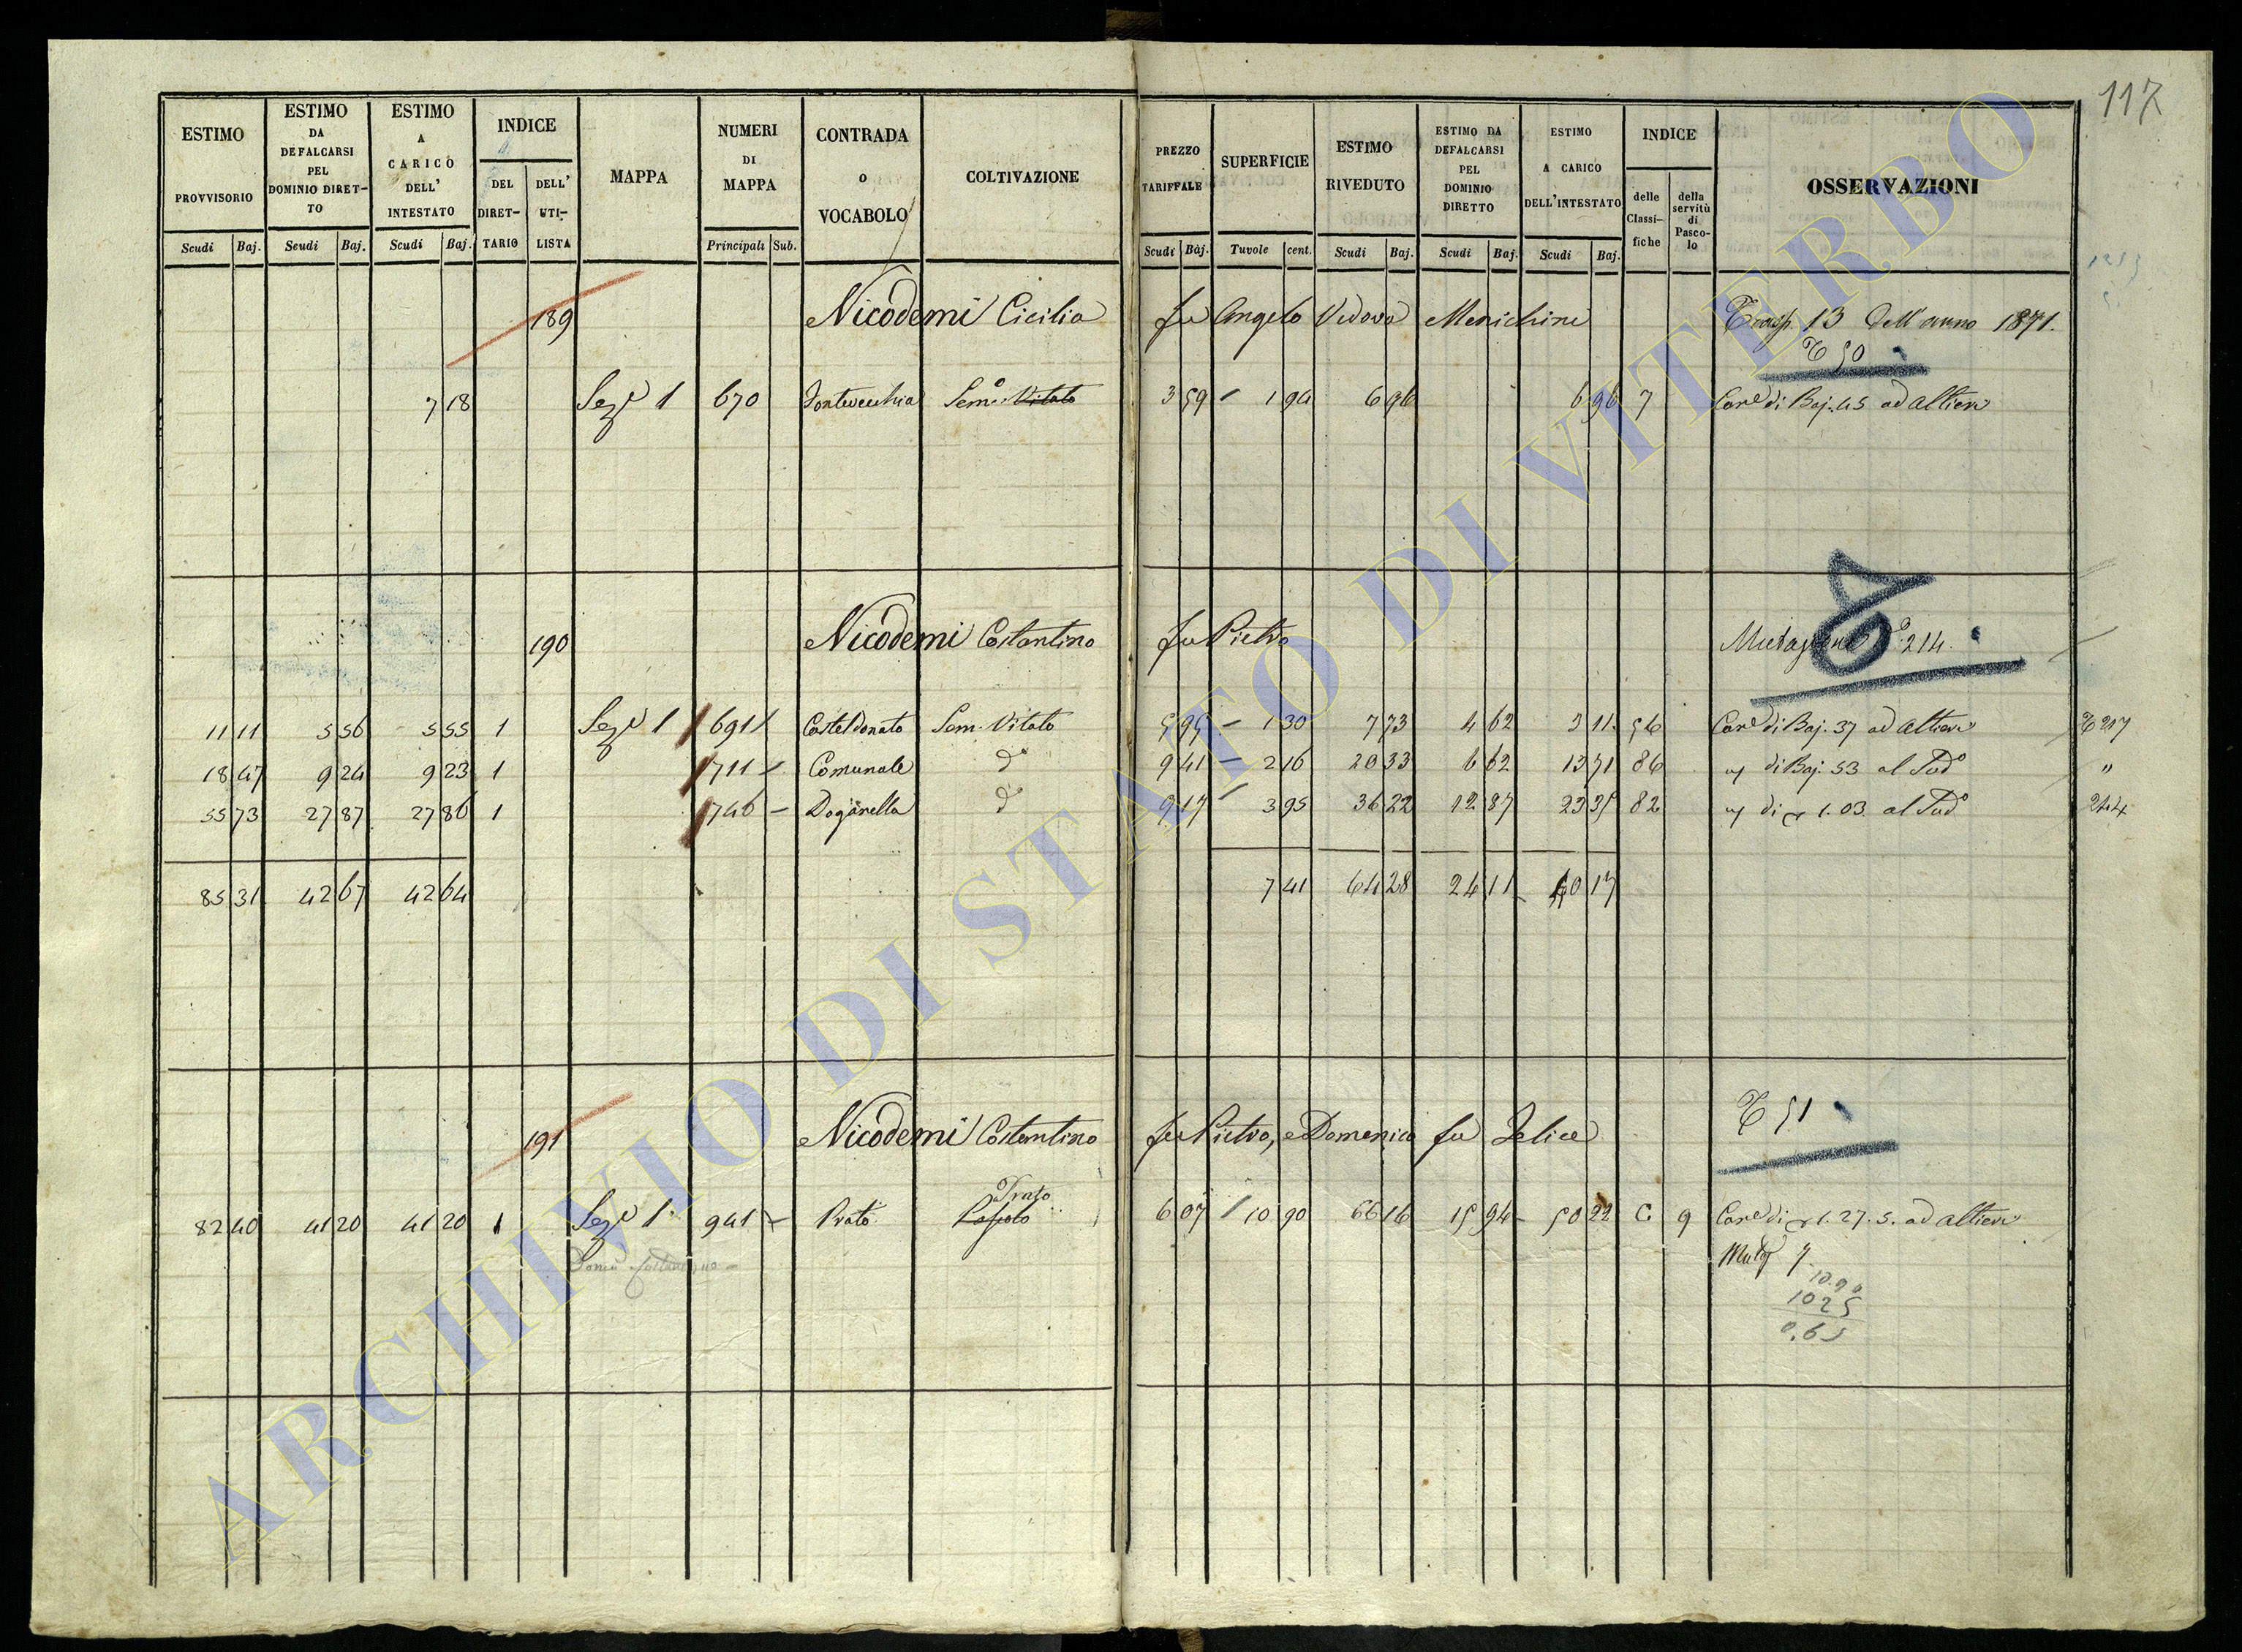 117
ESTIMO PROVVISORIO Scudi Baj.
ESTIMO DA DEFALCARSI PEL DOMINIO DIRET-TO Scudi Baj.
ESTIMO A CARICO DELL' INTESTATO Scudi Baj.
INDICE DEL DIRET-TARIO DELL' UTI-LISTA
MAPPA
NUMERI DI MAPPA Principali Sub.
CONTRADA O VOCABOLO
COLTIVAZIONE
PREZZO TARIFFALE Scudi Baj.
SUPERFICIE Tavole cent.
ESTIMO RIVEDUTO Scudi Baj.
ESTIMO DA DEFALCARSI PEL DOMINIO DIRETTO Scudi Baj.
ESTIMO A CARICO DELL'INTESTATO Scudi Baj.
INDICE delle Classi-fiche della servitù di Pasco-lo
OSSERVAZIONI
189 Nicodemi Cicilia fu Angelo Vedova Menichini Trasp. 13 dell'anno 1871.
T 50
7 18 Seze 1 670 Fontevecchia Semo. Vitato 3 59 1 94 6 96 6 96 7 Cone di Baj. 45 ad Altieri
190 Nicodemi Costantino fu Pietro Mutazione 214.
11 11 5 56 5 55 1 Seze 1 691 Casteldonato Sem. Vitato 5 95 1 30 7 73 4 62 3 11 56 Cone di Baj. 37 ad Altieri T 217
18 47 9 24 9 23 1 711 Comunale do 9 41 2 16 20 33 6 62 13 71 86 di Baj. 53 al Sudo "
55 73 27 87 27 86 1 746 Doganella do 9 17 3 95 36 22 12 87 23 35 82 di 1.03 al Sudo 244
85 31 42 67 42 64 7 41 64 28 24 11 40 17
191 Nicodemi Costantino fu Pietro, e Domenico fu Felice T 51
Prato
82 40 41 20 41 20 1 Seze 1 941 Prato 6 07 10 90 66 16 15 94 50 22 C. 9 Cone di 1.27.5. ad Altieri
10.90
10 25
0.65
ARCHIVIO DI STATO DI VITERBO